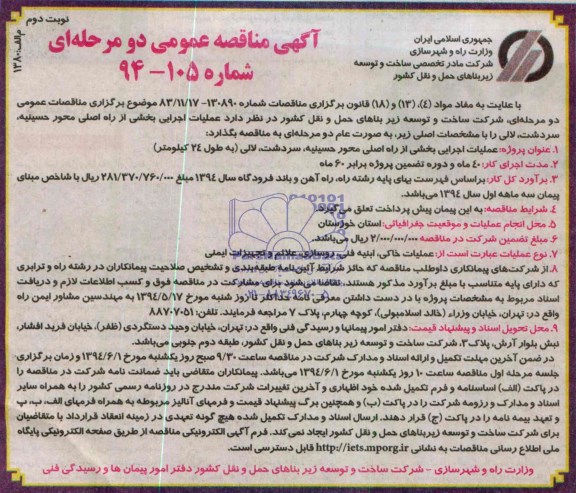 نوبت دوم
م الف: ۱۳۸۰
جمهوری اسلامی ایران
وزارت راه و شهرسازی
شرکت مادر تخصصی ساخت و توسعه
زیربناهای حمل و نقل کشور
آگهی مناقصه عمومی دو مرحله‌ای
شماره ۱۰۵- ۹۴
با عنایت به مفاد مواد (۴)، (۱۳) و (۱۸) قانون برگزاری مناقصات شماره ۱۳۰۸۹۰- ۸۳/۱۱/۱۷ موضوع برگزاری مناقصات عمومی
دو مرحله‌ای، شرکت ساخت و توسعه زیر بناهای حمل و نقل کشور در نظر دارد عملیات اجرایی بخشی از راه اصلی محور حسینیه،
سردشت، لالی را با مشخصات اصلی زیر، به صورت عام دو مرحله‌ای به مناقصه بگذارد:
۱. عنوان پروژه: عملیات اجرایی بخشی از راه اصلی محور حسینیه، سردشت، لالی (به طول ۲۴ کیلومتر)
۲. مدت اجرای کار: ۴۰ ماه و دوره تضمین پروژه برابر ۶۰ ماه
۳. برآورد کل کار: براساس فهرست بهای پایه رشته راه، راه آهن و باند فرودگاه سال ۱۳۹۴ مبلغ ۲۸۱/۳۷۰/۷۶۰/۰۰۰ ریال با شاخص مبنای
پیمان سه ماهه اول سال ۱۳۹۴ می‌باشد.
۴. شرایط مناقصه: به این پیمان پیش پرداخت تعلق می‌گیرد.
۵. محل انجام عملیات و موقعیت جغرافیائی: استان خوزستان
۶. مبلغ تضمین شرکت در مناقصه ۲/۰۰۰/۰۰۰/۰۰۰ ریال می‌باشد.
۷. نوع عملیات عبارت است از: عملیات خاکی، ابنیه فنی، روسازی، علائم و تجهیزات ایمنی
۸. از شرکت‌های پیمانکاری داوطلب مناقصه که حائز شرایط آئین‌نامه طبقه‌بندی و تشخیص صلاحیت پیمانکاران در رشته راه و ترابری
که دارای پایه متناسب با مبلغ برآورد مذکور هستند، تقاضا می‌شود برای مشارکت در مناقصه فوق و کسب اطلاعات لازم و دریافت
اسناد مربوط به مشخصات پروژه با در دست داشتن معرفی نامه حداکثر تا روز شنبه مورخ ۱۳۹۴/۵/۱۷ به مهندسین مشاور ایمن راه
واقع در: تهران، خیابان وزراء (خالد اسلامبولی)، کوچه چهارم، پلاک ۷ مراجعه فرمایند. تلفن: ۸۸۷۰۷۰۵۱
۹. محل تحویل اسناد و پیشنهاد قیمت: دفتر امور پیمانها و رسیدگی فنی واقع در: تهران، خیابان وحید دستگردی (ظفر)، خیابان فرید افشار،
نبش بلوار آرش، پلاک ۳، شرکت ساخت و توسعه زیر بناهای حمل و نقل کشور، طبقه دوم جنوبی می‌باشد.
در ضمن آخرین مهلت تکمیل و ارائه اسناد و مدارک شرکت در مناقصه ساعت ۹/۳۰ صبح روز یکشنبه مورخ ۱۳۹۴/۶/۱ و زمان برگزاری
جلسه مرحله اول مناقصه ساعت ۱۰ روز یکشنبه مورخ ۱۳۹۴/۶/۱ می‌باشد. پیمانکاران متقاضی باید ضمانت نامه شرکت در مناقصه را
در پاکت (الف) اساسنامه و فرم تکمیل شده خود اظهاری و آخرین تغییرات شرکت مندرج در روزنامه رسمی کشور را به همراه سایر
اسناد و مدارک و رزومه شرکت را در پاکت (ب) و همچنین برگ پیشنهاد قیمت و فرمهای آنالیز مربوطه به همراه فرمهای الف، ب، پ
و تعهد بیمه نامه را در پاکت (ج) قرار دهند. ارسال اسناد و مدارک تکمیل شده هیچ گونه تعهدی در زمینه انعقاد قرارداد با متقاضیان
برای شرکت ساخت و توسعه زیربناهای حمل و نقل کشور ایجاد نمی‌کند. فرم آگهی الکترونیکی مناقصه از طریق صفحه الکترونیکی پایگاه
ملی اطلاع رسانی مناقصات به نشانی http://iets.mporg.ir قابل دسترسی است.
وزارت راه و شهرسازی - شرکت ساخت و توسعه زیر بناهای حمل و نقل کشور دفتر امور پیمان ها و رسیدگی فنی